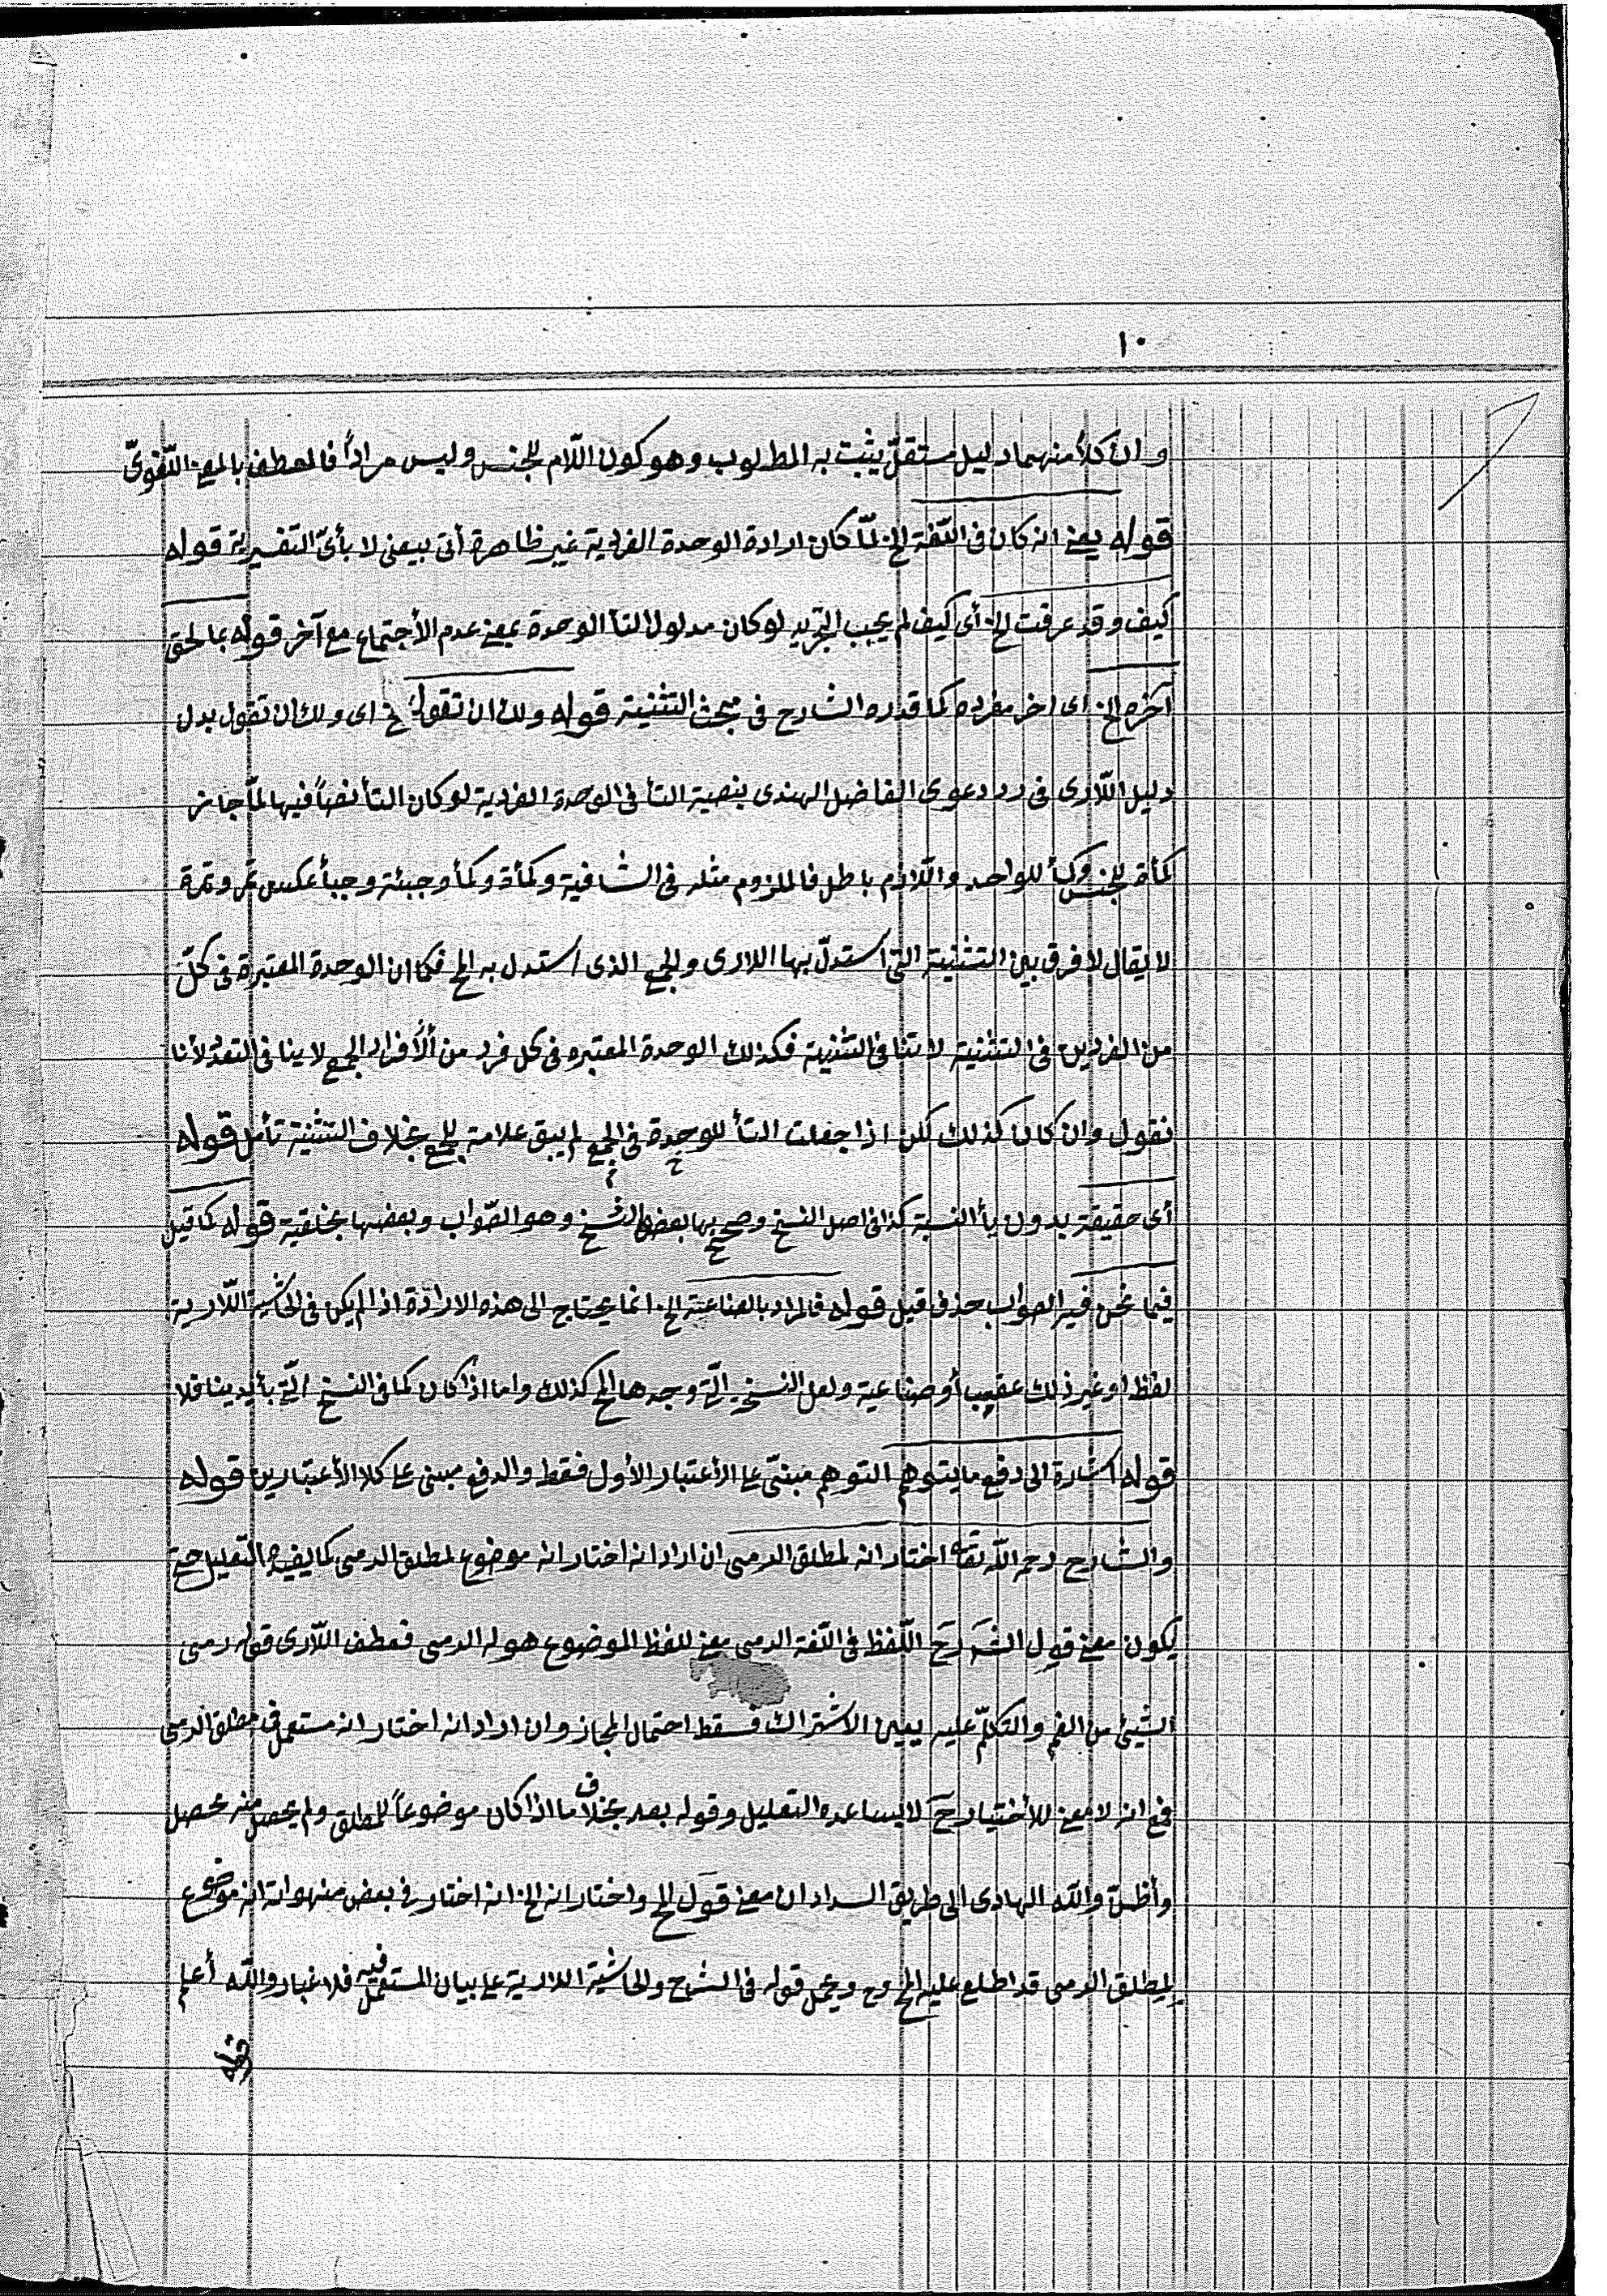 ١٠
وان كلاً منهما دليل مستقلّ يثبت به المطلوب وهو كون اللّام للجنس وليس مراداً فالعطف بالمعنى اللّغوىّ
قوله يعنى انه كان فى اللّغة الخ لمّا كان ارادة الوحدة الفردية غير ظاهرة أتى بيعنى لا بأىّ التفسيرية قوله
كيف وقد عرفت الخ أى كيف لم يجب التجريد لو كان مدلول التأ الوحدة بمعنى عدم الأجتماع مع آخر قوله بما لحق
آخره الخ اى اخر مفرده كما قدره الشارح فى مبحث التثنية قوله ولك ان تقول الخ اى ولك ان تقول بدل
دليل اللّارى فى رد دعوى الفاضل الهندى بنصية التأ فى الوحدة الفردية لو كان التأ نصاً فيها لمّا جاز
كمأة للجنس وكمأ للواحد واللّازم باطل فالملزوم مثله فى الشافية وكمأة وكمأ وجبئة وجبأ عكس تمر وتمرة
لا يقال لا فرق بين التثنية التى استدلّ بها اللارى والجمع الذى استدل به المح فكما ان الوحدة المعتبرة فى كلّ
من الفردين فى التثنية لا تنافى التثنية فكذلك الوحدة المعتبره فى كل فرد من ألأفراد الجمع لا ينافى التعدّد لأنا
نقول وان كان كذلك لكن اذا جعلت التأ للوحدة فى الجمع لم يبق علامة للجمع بخلاف التثنية تأمل قوله
أى حقيقة بدون يأ النسبة كذا فى اصل النسخ وصحح بها بعض النسخ وهو الصّواب وبعضها بحقيقية قوله كما قيل
فيما نحن فيه الصواب حذف قيل قوله فالمراد بالصناعية الخ انما يحتاج الى هذه الارادة اذا لم يكن فى الحاشية اللّارية
لفظ او غير ذلك عقيب أو صناعية ولعل النسخة الّتى وجدها المح كذلك واما اذا كان كما فى النسخ الّتى بأيدينا فلا
قوله اشارة الى دفع ما يتوهم التوهم مبنىّ على الأعتبار الأول فقط والدفع مبنى على كلا الأعتبارين قوله
والشارح رحمه اللّه تعا اختار انه لمطلق الرمى ان اراد انه اختار انه موضوع لمطلق الرمى كما يفيده التعليل حتى
يكون معنى قول الشَ رحَ اللّفظ فى اللّغة الرمى معنى للفظ الموضوع هو له الرمى فعطف اللّارى قوله رمى
الشيئ من الفم والتكلّم عليه يعين الاشتراك فسقط احتمال المجاز وان اراد انه اختار انه مستعمل فى مطلق الرمى
فمع انه لا معنى للأختيار حَ لا يساعده التعليل وقوله بعد بخلاف ما اذا كان موضوعاً للمطلق ولم يحصل منه محصل
وأظنّ واللّه الهادى الى طريق السداد ان معنى قول المح واختار انه الخ انه اختار فى بعض منهواته انه موضوع
لمطلق الرمى قد اطلع عليه المح وح ويحمل قوله فى الشرح والحاشية اللارية على بيان المستعمل فيه فلا غبار واللّه أعلم
قوله